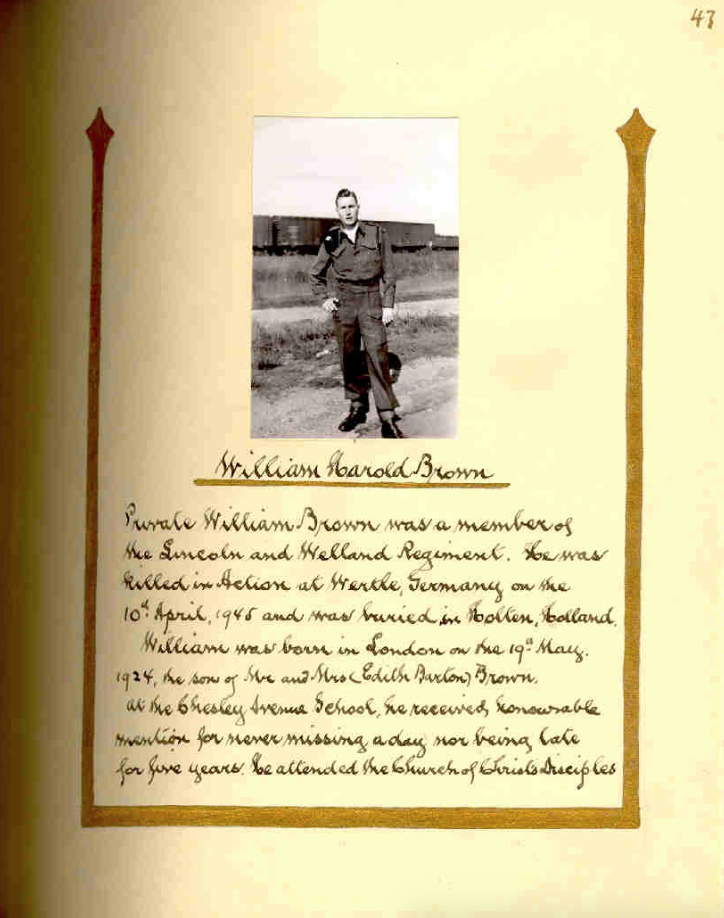 47
William Harold Brown
Private William Brown was a member of
the Lincoln and Welland Regiment. He was
killed in Action at Wertle, Germany on the
10th April, 1945 and was buried in Holten, Holland.
William was born in London on the 19th May.
1924, the son of Mr and Mrs (Edith Barton) Brown.
At the Chesley Avenue School, he received honourable
mention for never missing a day nor being late
for five years. He attended the Church of Christs Disciples